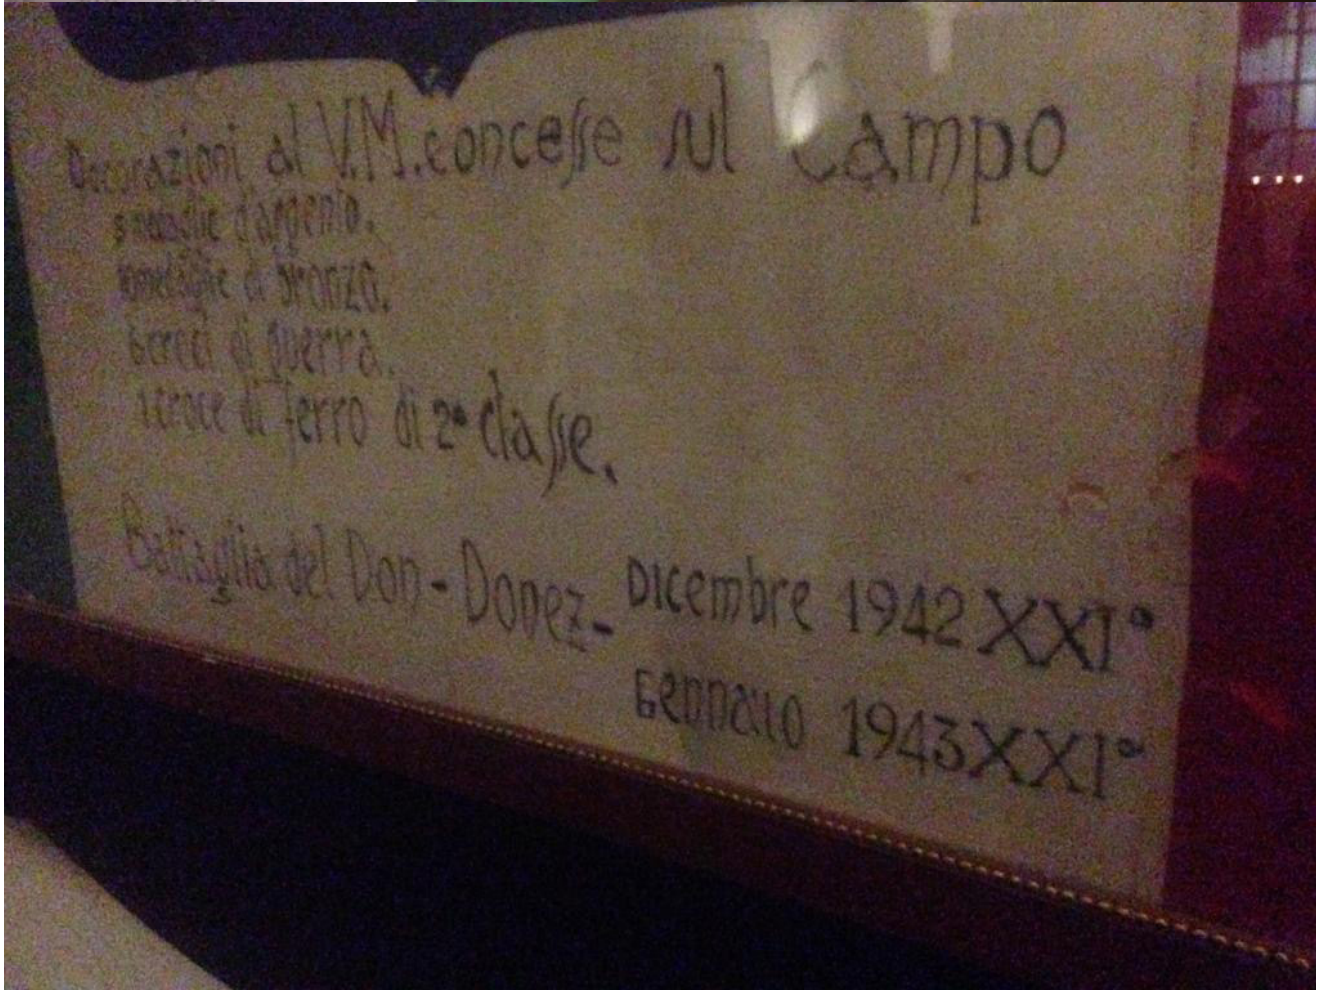 Decorazioni al V.M. concesse sul Campo
5 medaglie d'argento.
10 medaglie di bronzo.
6 croci di guerra.
1 croce di ferro di 2ª classe.
Battaglia del Don - Donez - Dicembre 1942 XXI°
Gennaio 1943 XXI°